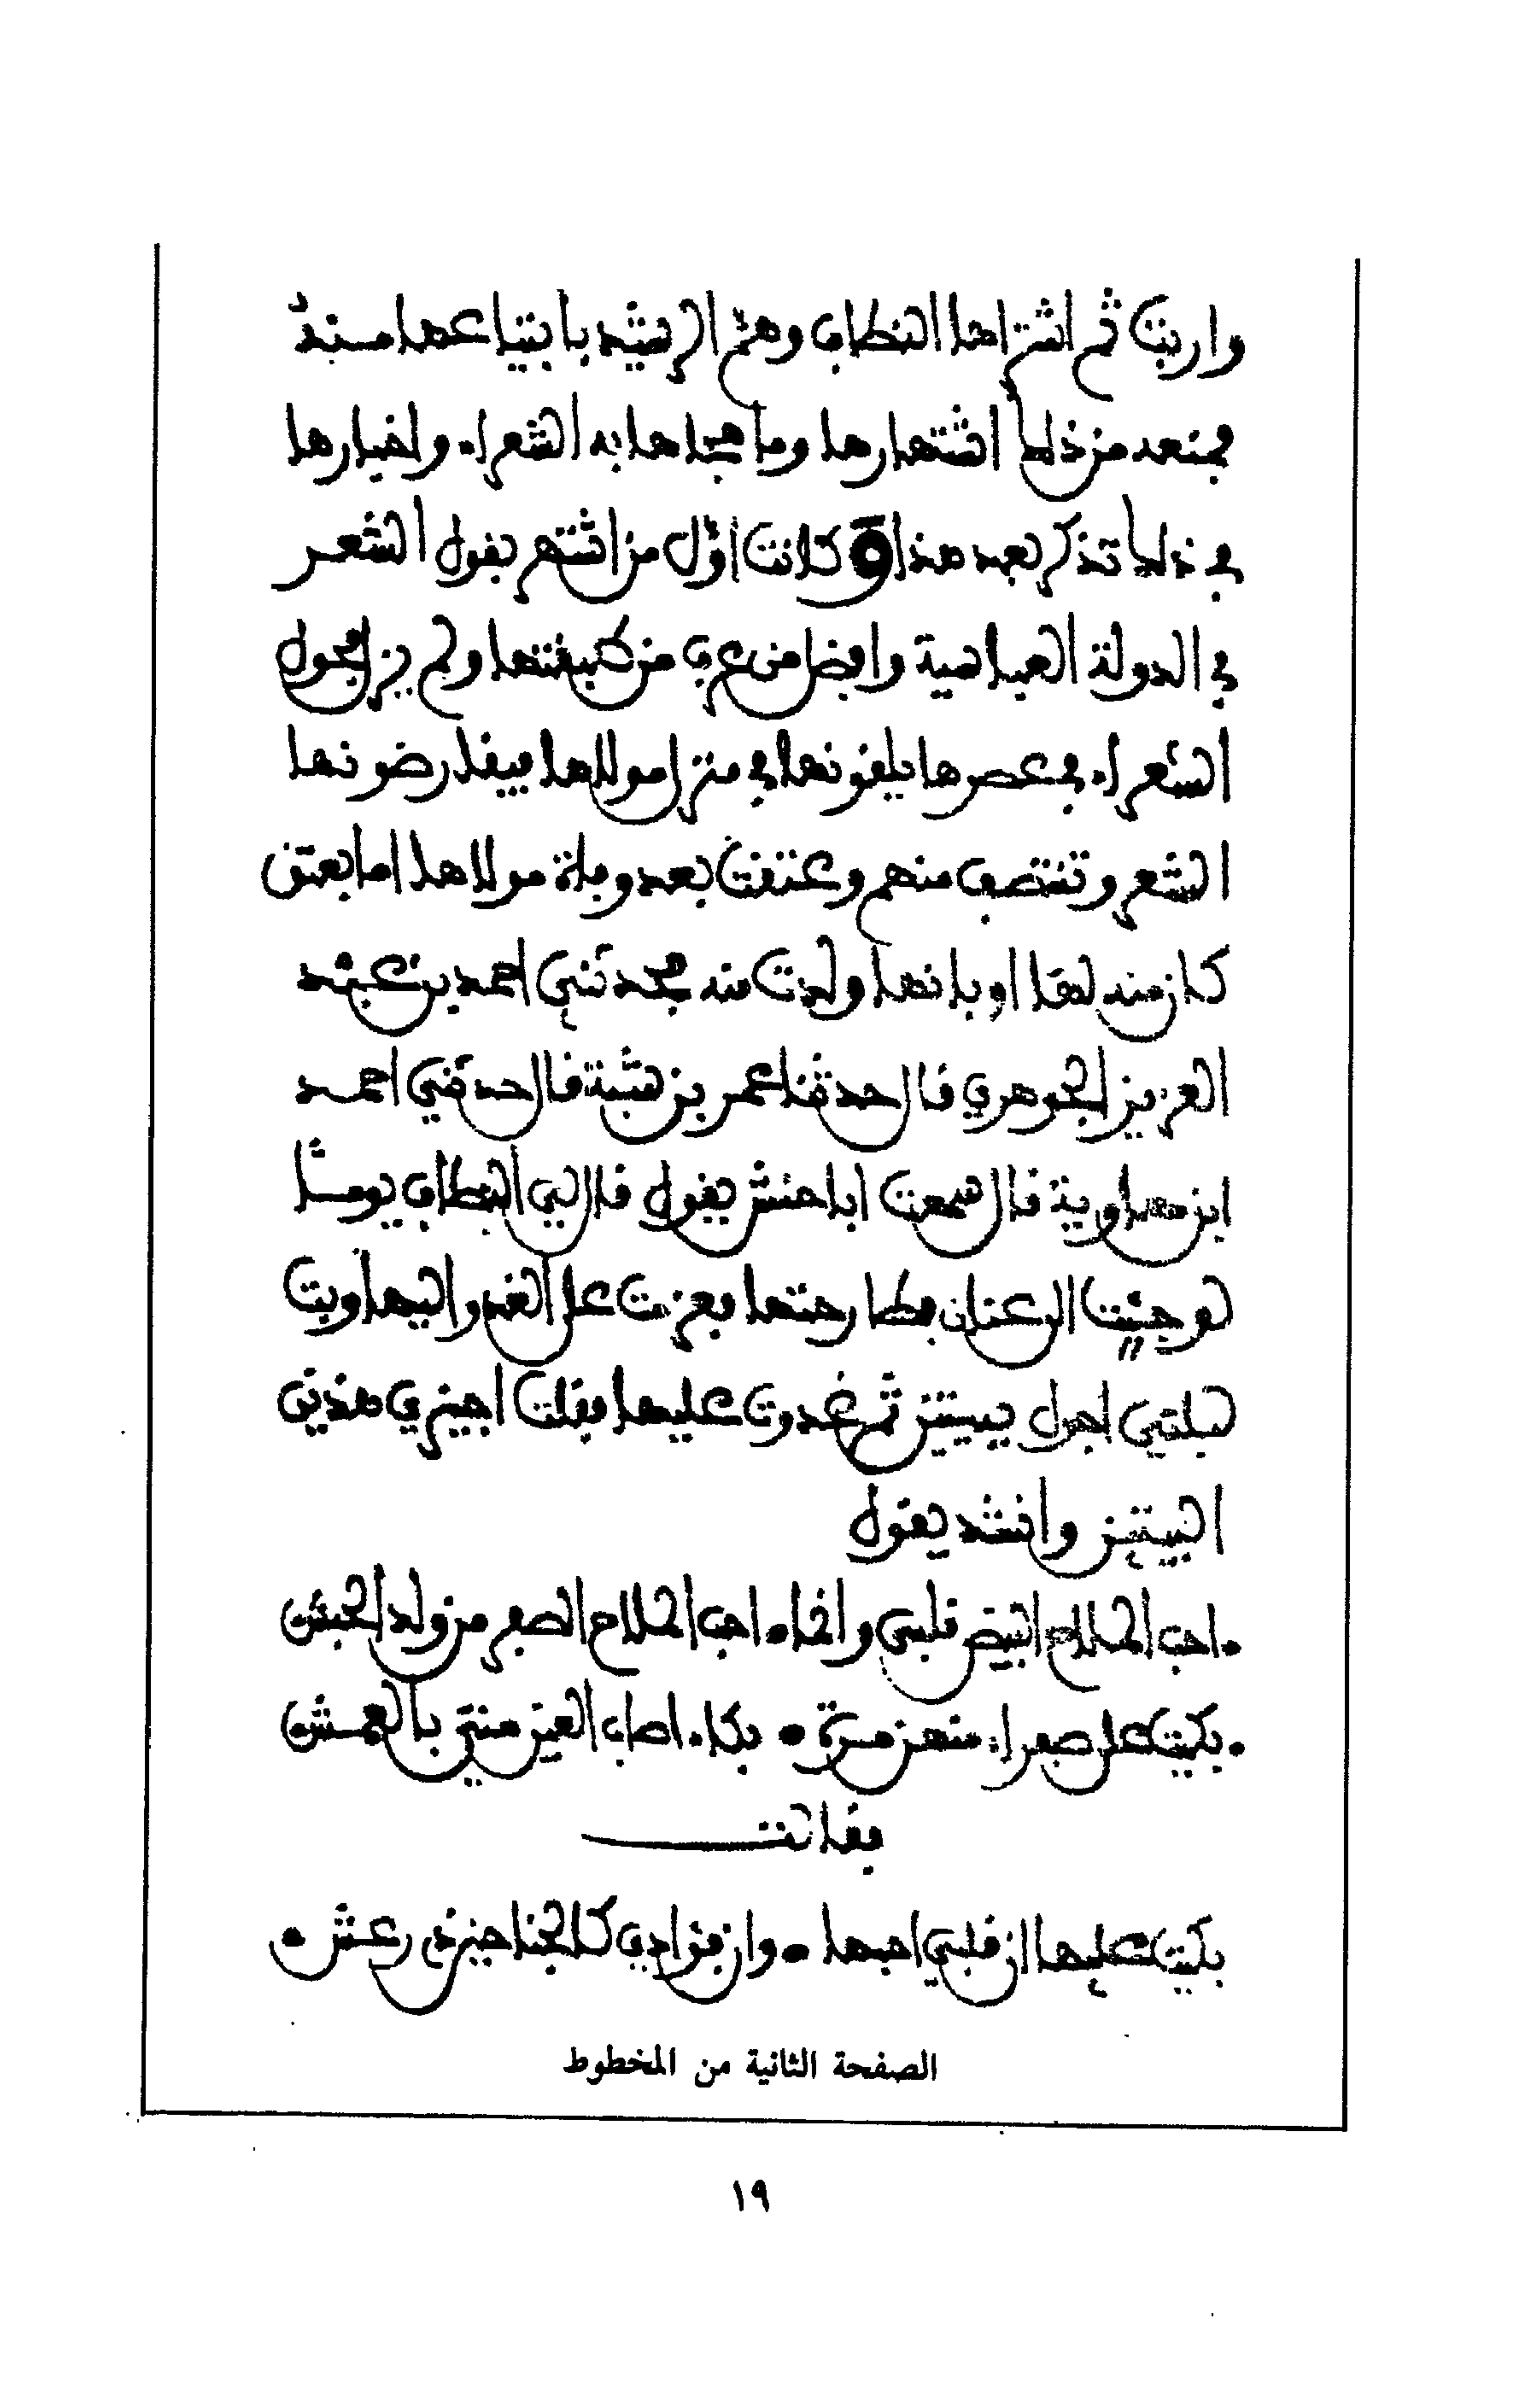 واربت ثم اشتراها النطاف وهم الرشيد بابتياعها منه
فمنعه من ذلك اشتهارها وما هجاها به الشعراء واخبارها
في ذلك تذكر بعد هذا وكانت اول من اشتهر بقول الشعر
في الدولة العباسية وافضل من عرف من طبقتها ولم يزل فحول
الشعراء في عصرها يلقونها في منزل مولاها فيقارضونها
الشعر وتنتصف منهم وعتقت بعد وفاة مولاها اما بعتق
كان منه لها او بانها ولدت منه فحدثني احمد بن عبد
العزيز الجوهري قال حدثنا عمر بن شبة قال حدثني احمد
ابن معاوية قال سمعت ابا حنش يقول قال لي النطاف يوما
لو جئت الى عنان فطارحتها فعزمت على الغدو اليها وبت
ليلتي اجول ببيتين ثم غدوت عليها فقلت اجيزي هذين
البيتين وانشد يقول
احب الملاح البيض قلبي وانما احب الملاح الصفر من ولد الحبش
بكيت على صفراء منهن مرة بكاء اصاب العين مني بالعمش
فقالت
بكيت عليها ان قلبي احبها وان فؤادي كالجناحين ذي رعش
الصفحة الثانية من المخطوط
١٩